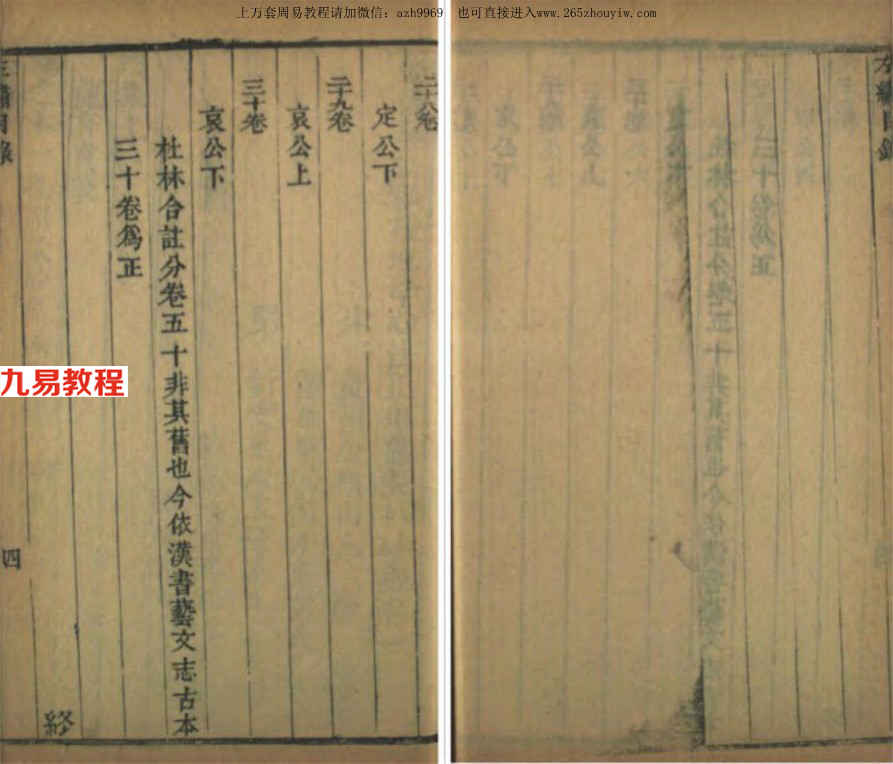 上万套周易教程请加微信：azh9969 也可直接进入www.265zhouyiw.com
二十八卷
定公下
二十九卷
哀公上
三十卷
哀公下
杜林合註分卷五十非其舊也今依漢書藝文志古本
三十卷爲正
終
左繡目錄
四
九易教程